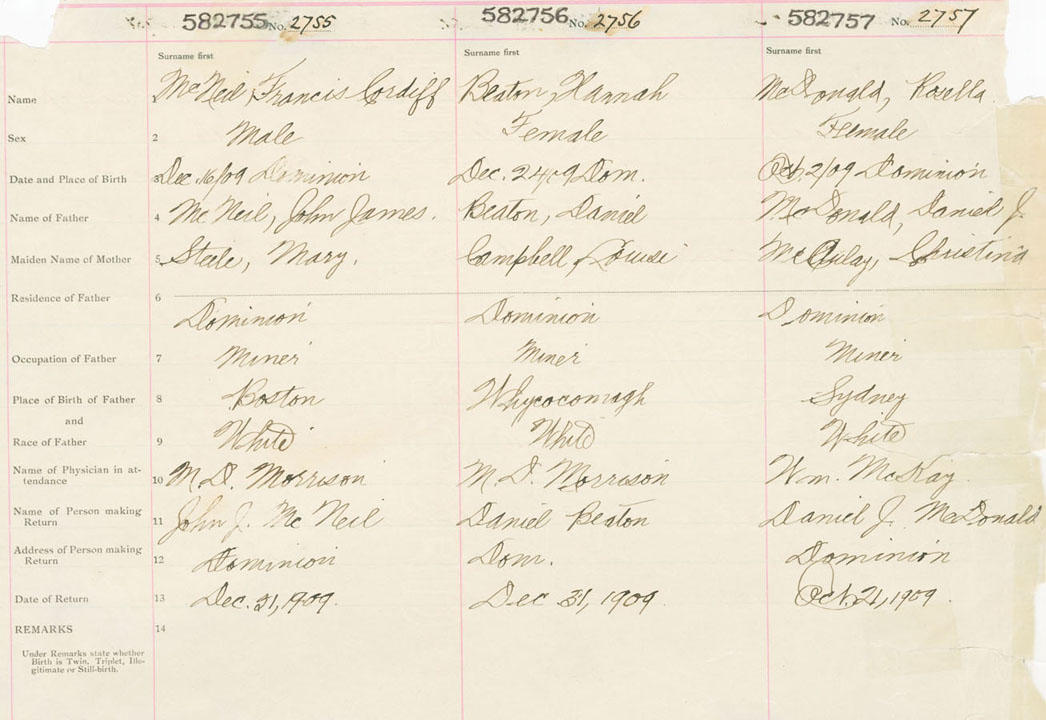 582755 No. 2755 582756 No. 2756 582757 No. 2757
Surname first Surname first Surname first
Name 1 McNeil, Francis Cordiff Beaton, Hannah McDonald, Rosella
Sex 2 Male Female Female
Date and Place of Birth 3 Dec. 16/09 Dominion Dec. 24/09 Dom. Oct. 2/09 Dominion
Name of Father 4 McNeil, John James. Beaton, Daniel McDonald, Daniel J.
Maiden Name of Mother 5 Steele, Mary. Campbell, Louise McAulay, Christina
Residence of Father 6
Dominion Dominion Dominion
Occupation of Father 7 Miner Miner Miner
Place of Birth of Father 8 Boston Whycocomagh Sydney
and
Race of Father 9 White White White
Name of Physician in at-
tendance 10 M. D. Morrison M. D. Morrison Wm. McKay.
Name of Person making
Return 11 John J. McNeil Daniel Beaton Daniel J. McDonald
Address of Person making
Return 12 Dominion Dom. Dominion
Date of Return 13 Dec. 31, 1909. Dec 31, 1909. Oct. 21, 1909.
REMARKS 14
Under Remarks state whether
Birth is Twin, Triplet, Ille-
gitimate or Still-birth.